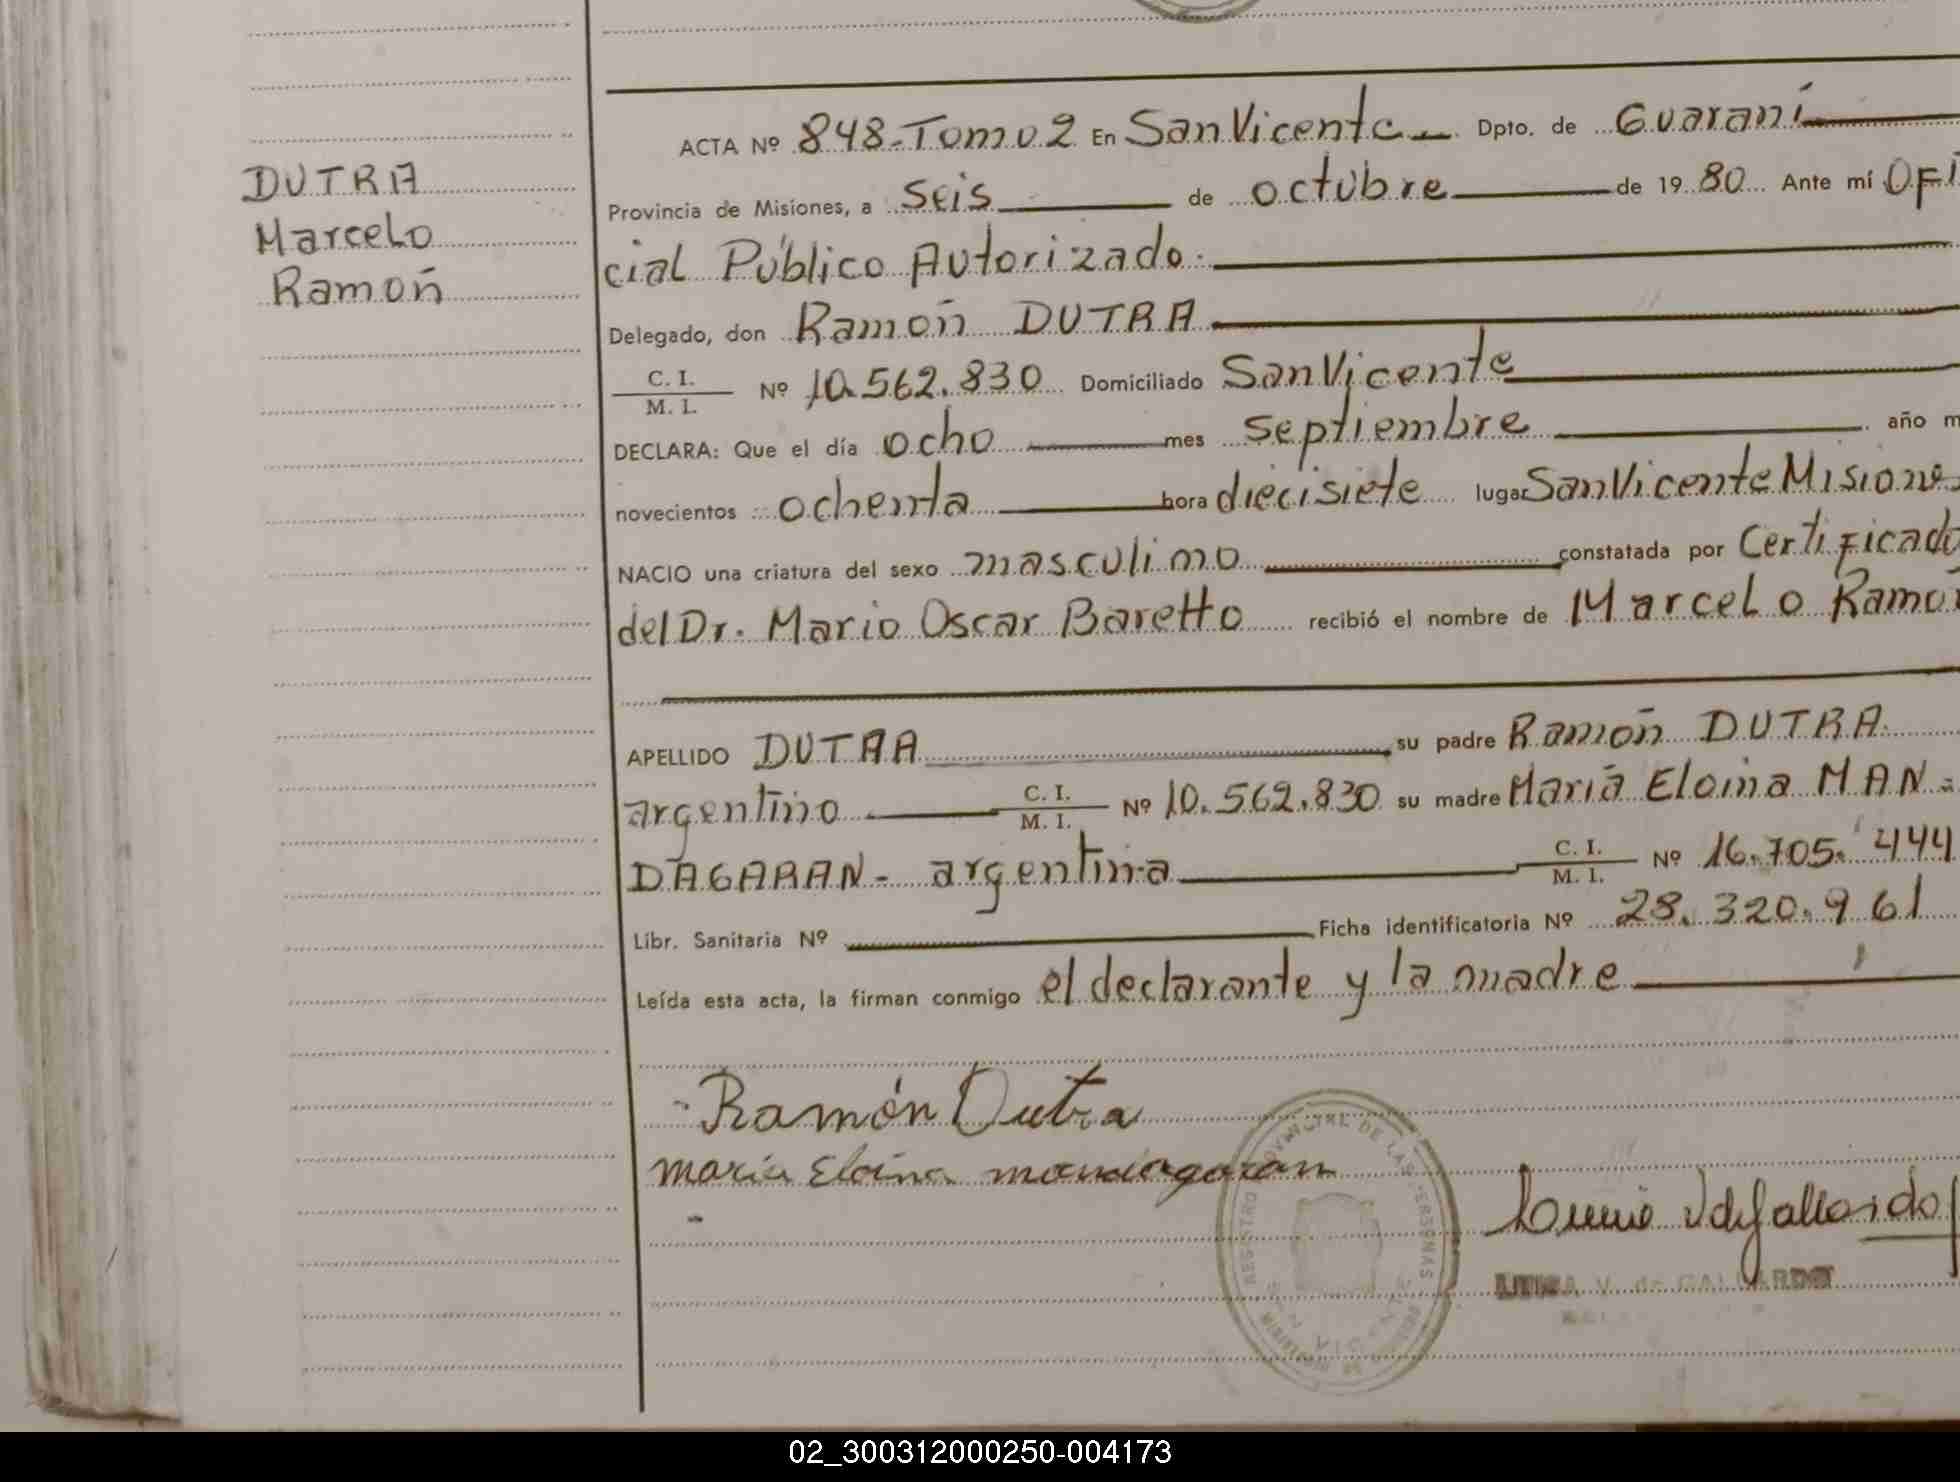 DUTRA
Marcelo
Ramón
ACTA Nº 848-Tomo 2 En San Vicente Dpto. de Guaraní
Provincia de Misiones, a seis de octubre de 1980 Ante mí Ofi
cial Público Autorizado.
Delegado, don Ramón DUTRA
C. I.
M. I. Nº 10.562.830 Domiciliado San Vicente
DECLARA: Que el día ocho mes septiembre año m
novecientos ochenta hora diecisiete lugar San Vicente Misiones
NACIO una criatura del sexo masculino constatada por Certificado
del Dr. Mario Oscar Baretto recibió el nombre de Marcelo Ramón
APELLIDO DUTRA su padre Ramón DUTRA
argentino C. I. M. I. Nº 10.562.830 su madre María Eloina MAN=
DAGARAN- argentina C. I. M. I. Nº 16.705.444
Libr. Sanitaria Nº Ficha identificatoria Nº 28.320.961
Leída esta acta, la firman conmigo el declarante y la madre
Ramón Dutra
maria Eloina mandagaran
V. de GALLARDO
REGISTRO PROVINCIAL DE LAS PERSONAS
02_300312000250-004173